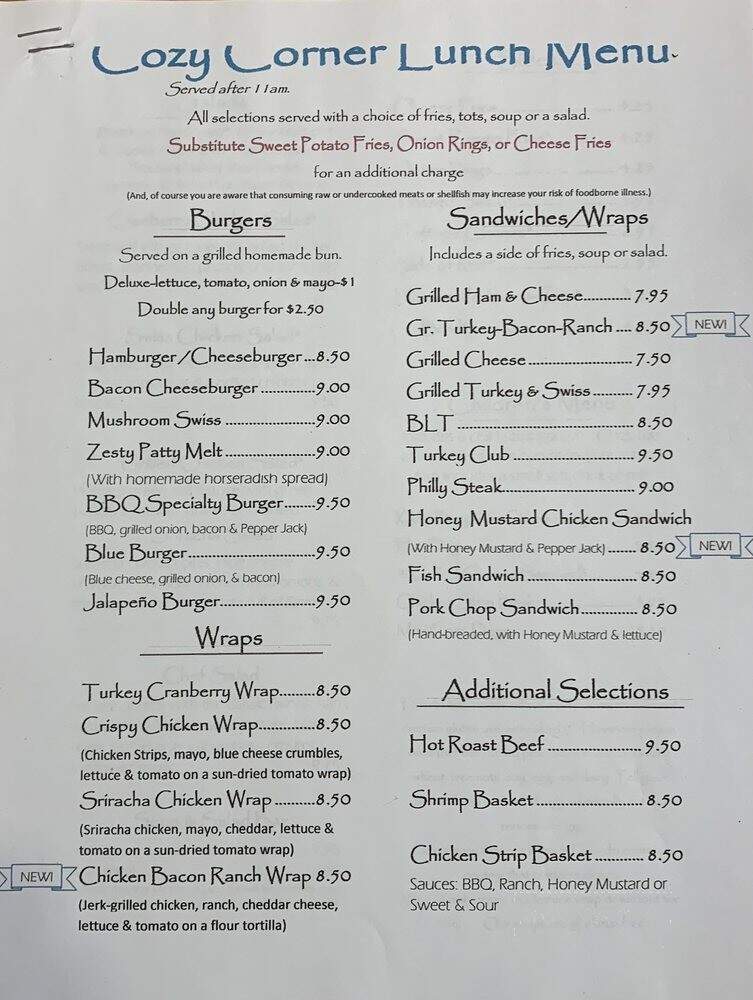 Cozy Corner Lunch Menu
Served after 11am.
All selections served with a choice of fries, tots, soup or a salad.
Substitute Sweet Potato Fries, Onion Rings, or Cheese Fries
for an additional charge
(And, of course you are aware that consuming raw or undercooked meats or shellfish may increase your risk of foodborne illness.)
Burgers
Served on a grilled homemade bun.
Deluxe-lettuce, tomato, onion & mayo-$1
Double any burger for $2.50
Hamburger/Cheeseburger...8.50
Bacon Cheeseburger ..............9.00
Mushroom Swiss .....................9.00
Zesty Patty Melt .....................9.00
(With homemade horseradish spread)
BBQ Specialty Burger........9.50
(BBQ, grilled onion, bacon & Pepper Jack)
Blue Burger..............................9.50
(Blue cheese, grilled onion, & bacon)
Jalapeño Burger.......................9.50
Wraps
Turkey Cranberry Wrap.........8.50
Crispy Chicken Wrap..............8.50
(Chicken Strips, mayo, blue cheese crumbles,
lettuce & tomato on a sun-dried tomato wrap)
Sriracha Chicken Wrap ..........8.50
(Sriracha chicken, mayo, cheddar, lettuce &
tomato on a sun-dried tomato wrap)
NEW! Chicken Bacon Ranch Wrap 8.50
(Jerk-grilled chicken, ranch, cheddar cheese,
lettuce & tomato on a flour tortilla)
Sandwiches/Wraps
Includes a side of fries, soup or salad.
Grilled Ham & Cheese............ 7.95
Gr. Turkey-Bacon-Ranch .... 8.50 NEW!
Grilled Cheese .......................... 7.50
Grilled Turkey & Swiss .......... 7.95
BLT ............................................. 8.50
Turkey Club ............................... 9.50
Philly Steak.................................. 9.00
Honey Mustard Chicken Sandwich
(With Honey Mustard & Pepper Jack) ....... 8.50 NEW!
Fish Sandwich ........................... 8.50
Pork Chop Sandwich.............. 8.50
(Hand-breaded, with Honey Mustard & lettuce)
Additional Selections
Hot Roast Beef ....................... 9.50
Shrimp Basket .......................... 8.50
Chicken Strip Basket ............ 8.50
Sauces: BBQ, Ranch, Honey Mustard or
Sweet & Sour